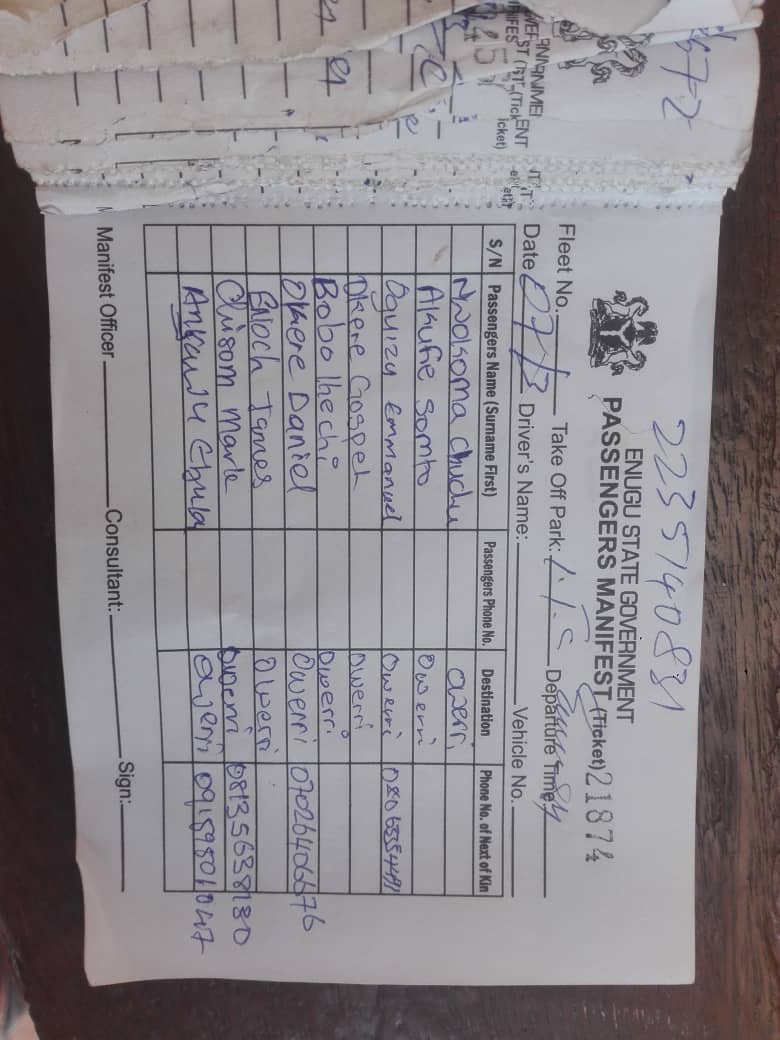 2235140831
ENUGU STATE GOVERNMENT
PASSENGERS MANIFEST (Ticket) 21874
Fleet No. Take Off Park: Departure Time
Date 07/3 Driver's Name: Vehicle No.
S/N Passengers Name (Surname First) Passengers Phone No. Destination Phone No. of Next of Kin
Nwokoma Chuchu owerri
Akufie Somto owerri
Oguizu Emmanuel Owerri
Okere Gospel owerri
Bobo Ihechi Owerri
Okere Daniel Owerri 07026406676
Enoch James Owerri
Chisom Mark Owerri 08135638180
Owerri 09159801047
Manifest Officer Consultant: Sign: